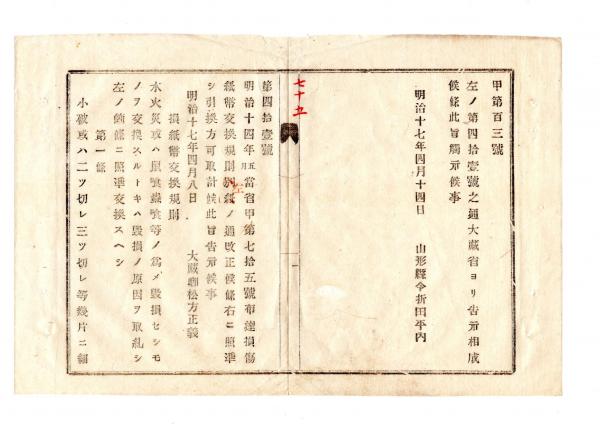 甲第百三號
左ノ第四拾壹號之通大藏省ヨリ告示相成
候條此旨觸示候事
明治十七年四月十四日　山形縣令折田平内
七十五
第四拾壹號
明治十四年五月當省甲第七拾五號布達損傷
紙幣交換規則別紙ノ通改正候條右ニ照準
左
シ引換方可取計候此旨告示候事
明治十七年四月八日　大藏卿松方正義
損紙幣交換規則
水火災或ハ鼠喰蟲喰等ノ爲メ毀損セシモ
ノヲ交換スルトキハ毀損ノ原因ヲ取糺シ
左ノ條ニ照準交換スヘシ
第一條
小破或ハ二ツ切レ三ツ切レ等幾片ニ